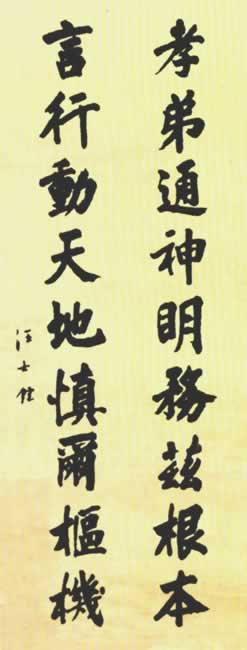 孝弟通神明務茲根本
言行動天地慎爾樞機
汪士鋐